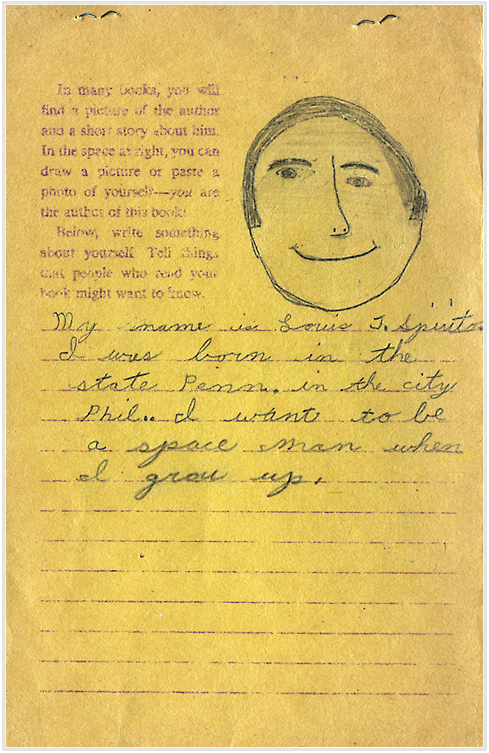 In many books, you will
find a picture of the author
and a short story about him.
In the space at right, you can
draw a picture or paste a
photo of yourself—you are
the author of this book!
Below, write something
about yourself. Tell things
that people who read your
book might want to know.
My name is Louis J. Spirito.
I was born in the
state Penn. in the city
Phil.. I want to be
a space man when
I grow up.